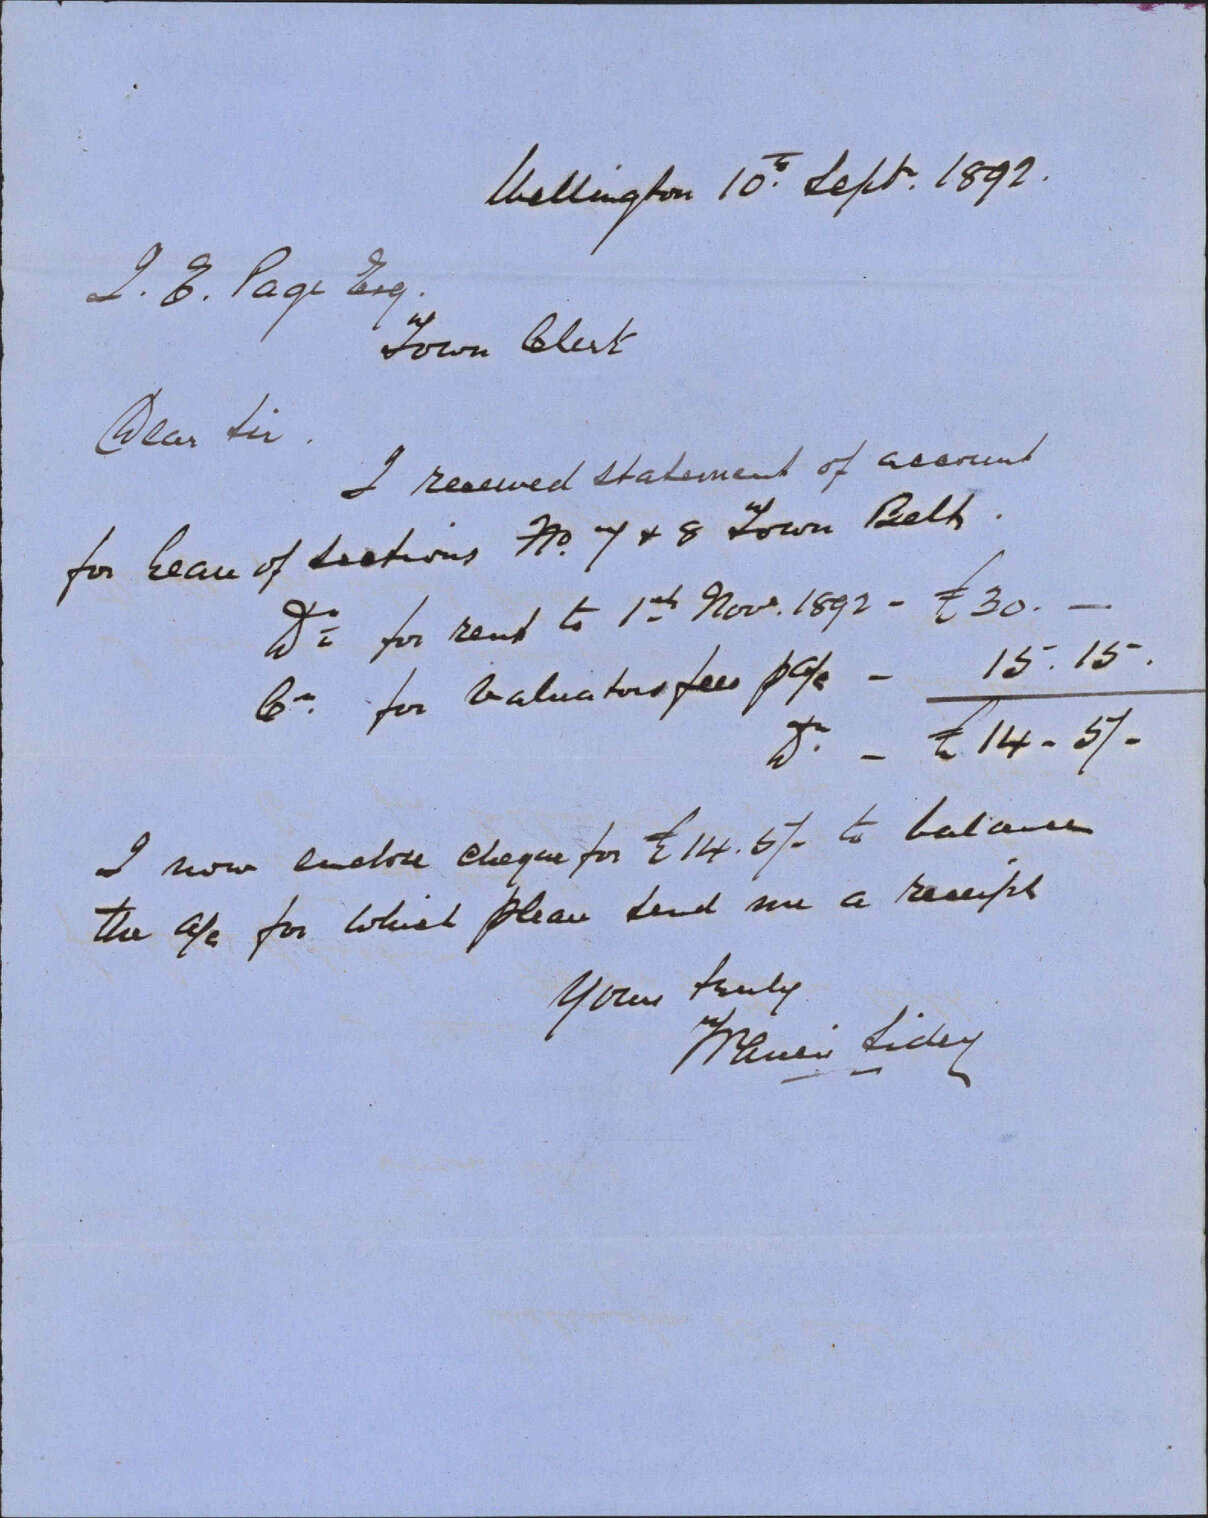 Wellington 10th Sept. 1892.
J. E. Page Esq.
Town Clerk
Dear Sir.
I received statement of account
for lease of sections No. 7 & 8 Town Belt.
Dr for rent to 1st Nov. 1892 - £30. —
Cr. for valuators fees p a/c - 15.15.
Dr. - £14-5/-
I now enclose cheque for £14.5/- to balance
the a/c for which please send me a receipt
Yours truly
Francis Sidey